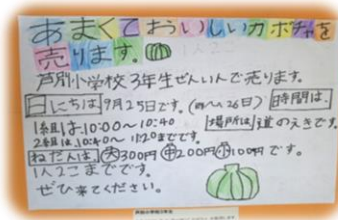 あまくておういしいカボチャを
売ります。
芦別小学校3年生ぜんいんで売ります。
日にちは9月25日です。(雨天26日) 時間は、
1組は、10:00~10:40
2組は、10:40~11:20までです。
場所は道のえきです。
ねだんは、大300円中200円小100円です。
1人2こまでです。
ぜひ来てください。